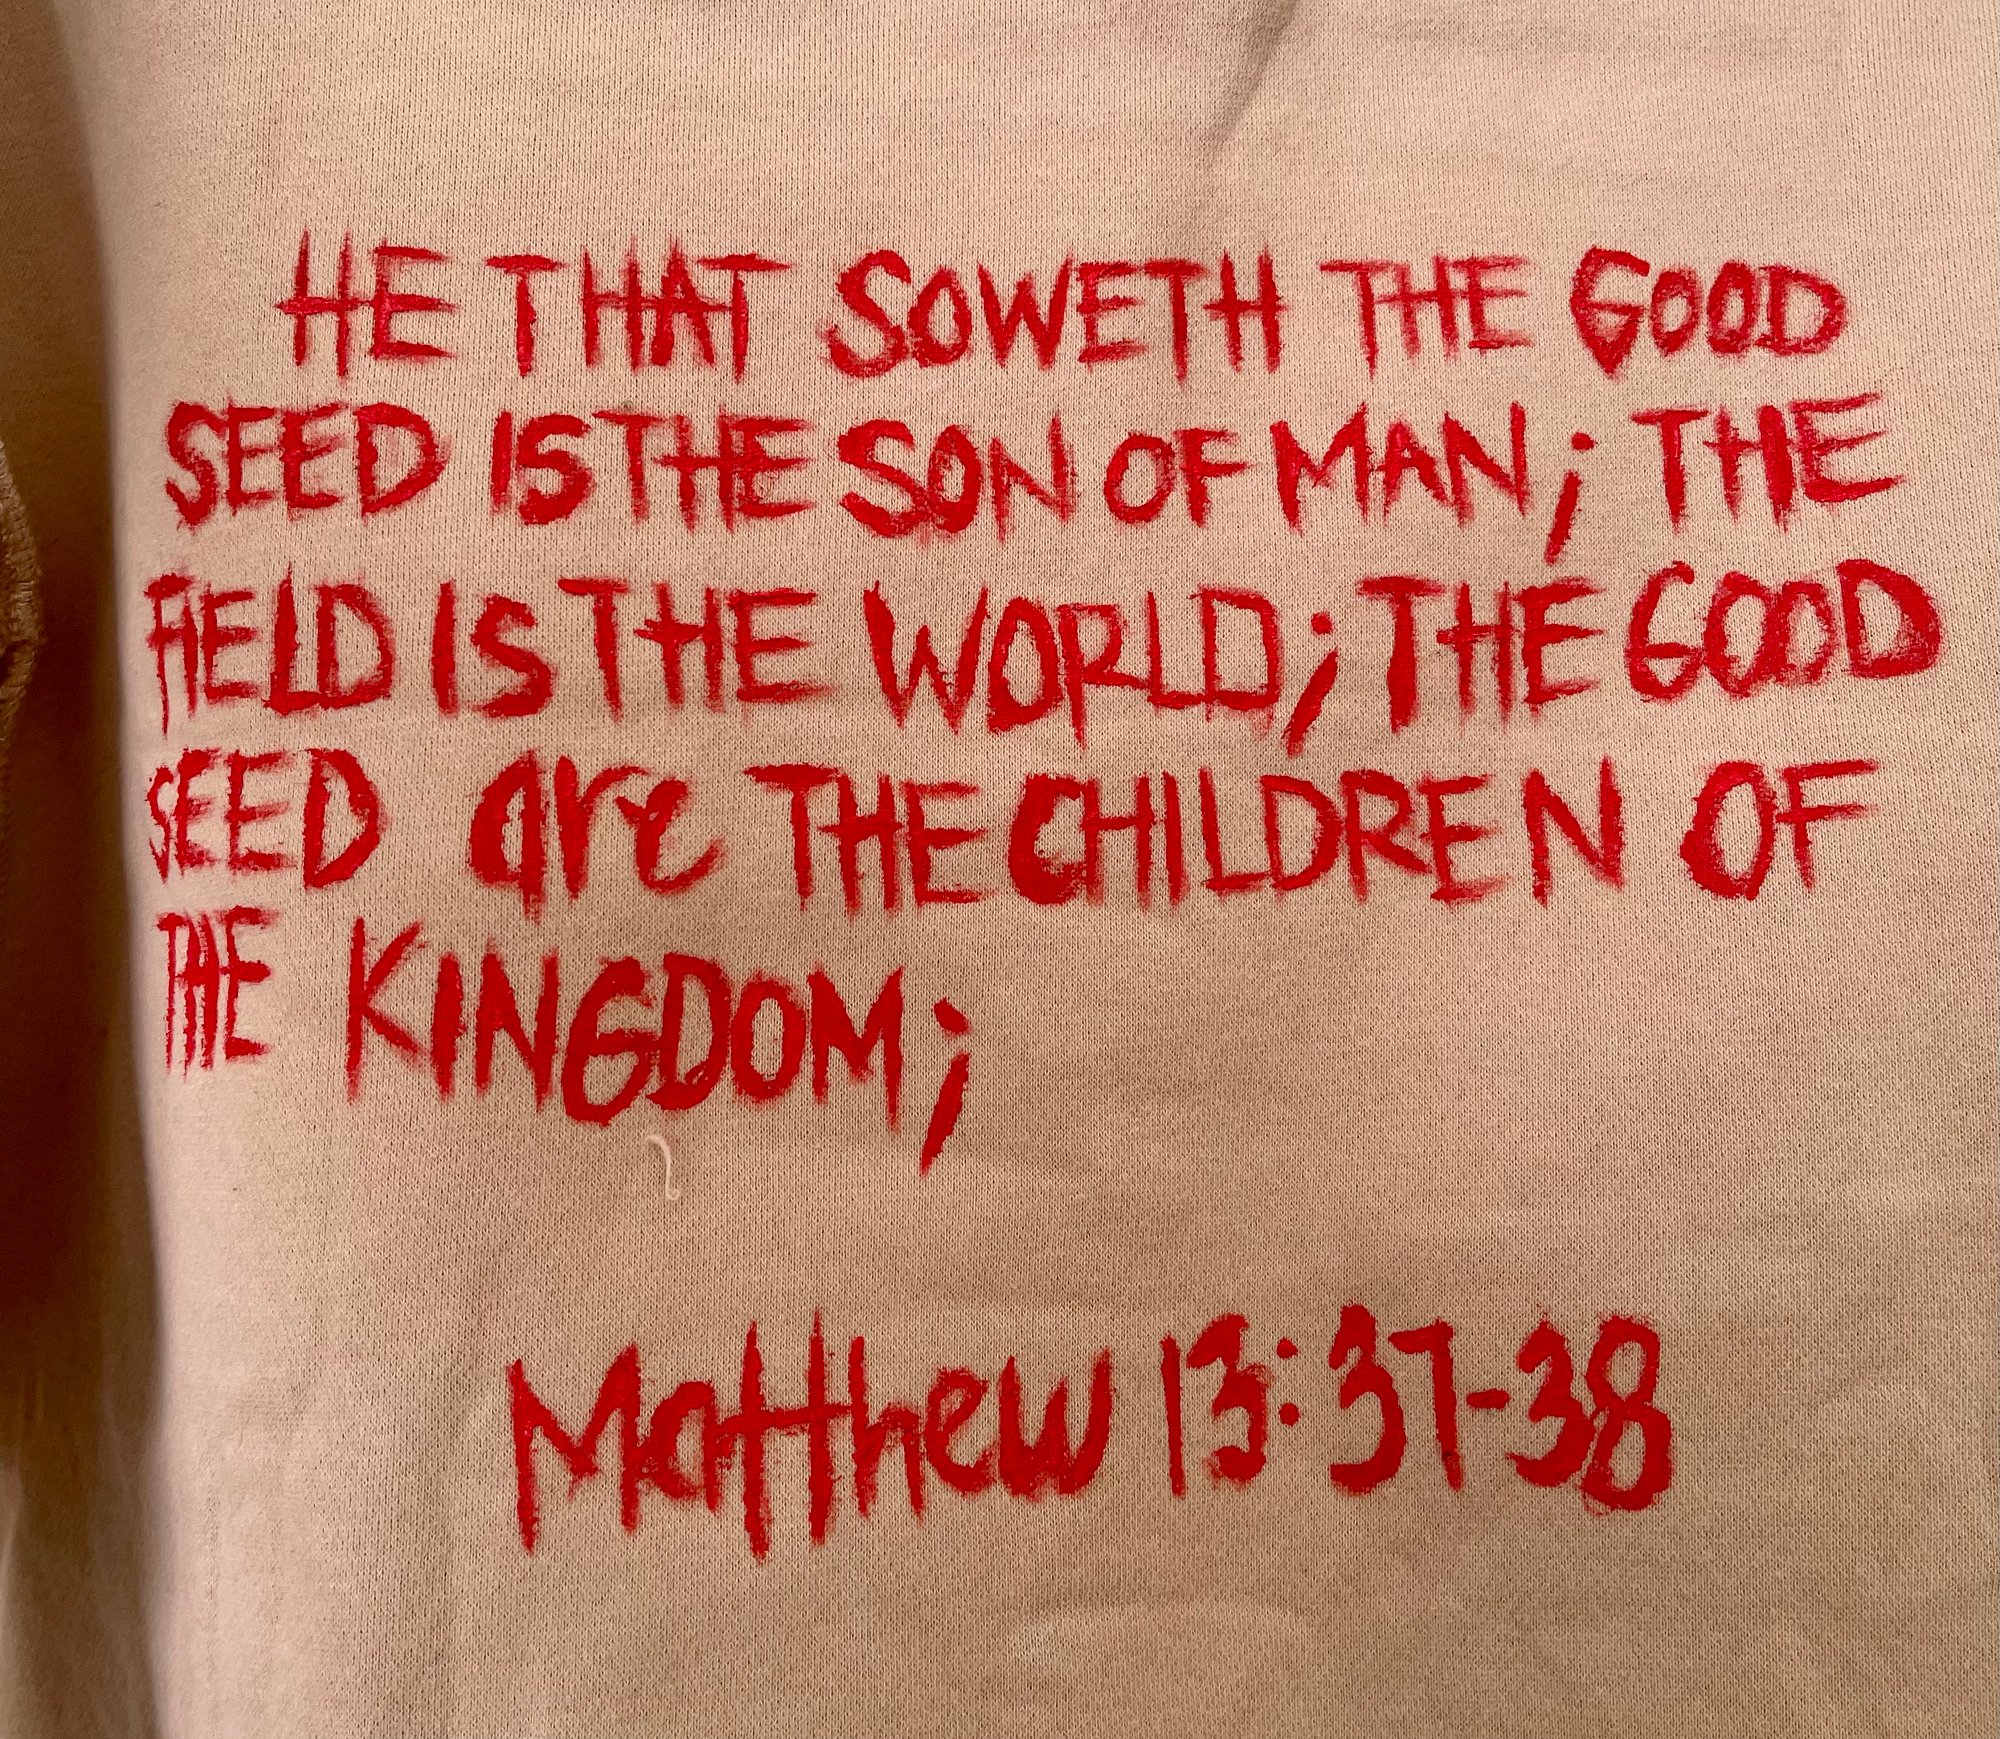 HE THAT SOWETH THE GOOD
SEED IS THE SON OF MAN; THE
FIELD IS THE WORLD; THE GOOD
SEED are THE CHILDREN OF
THE KINGDOM;
Matthew 13:37-38